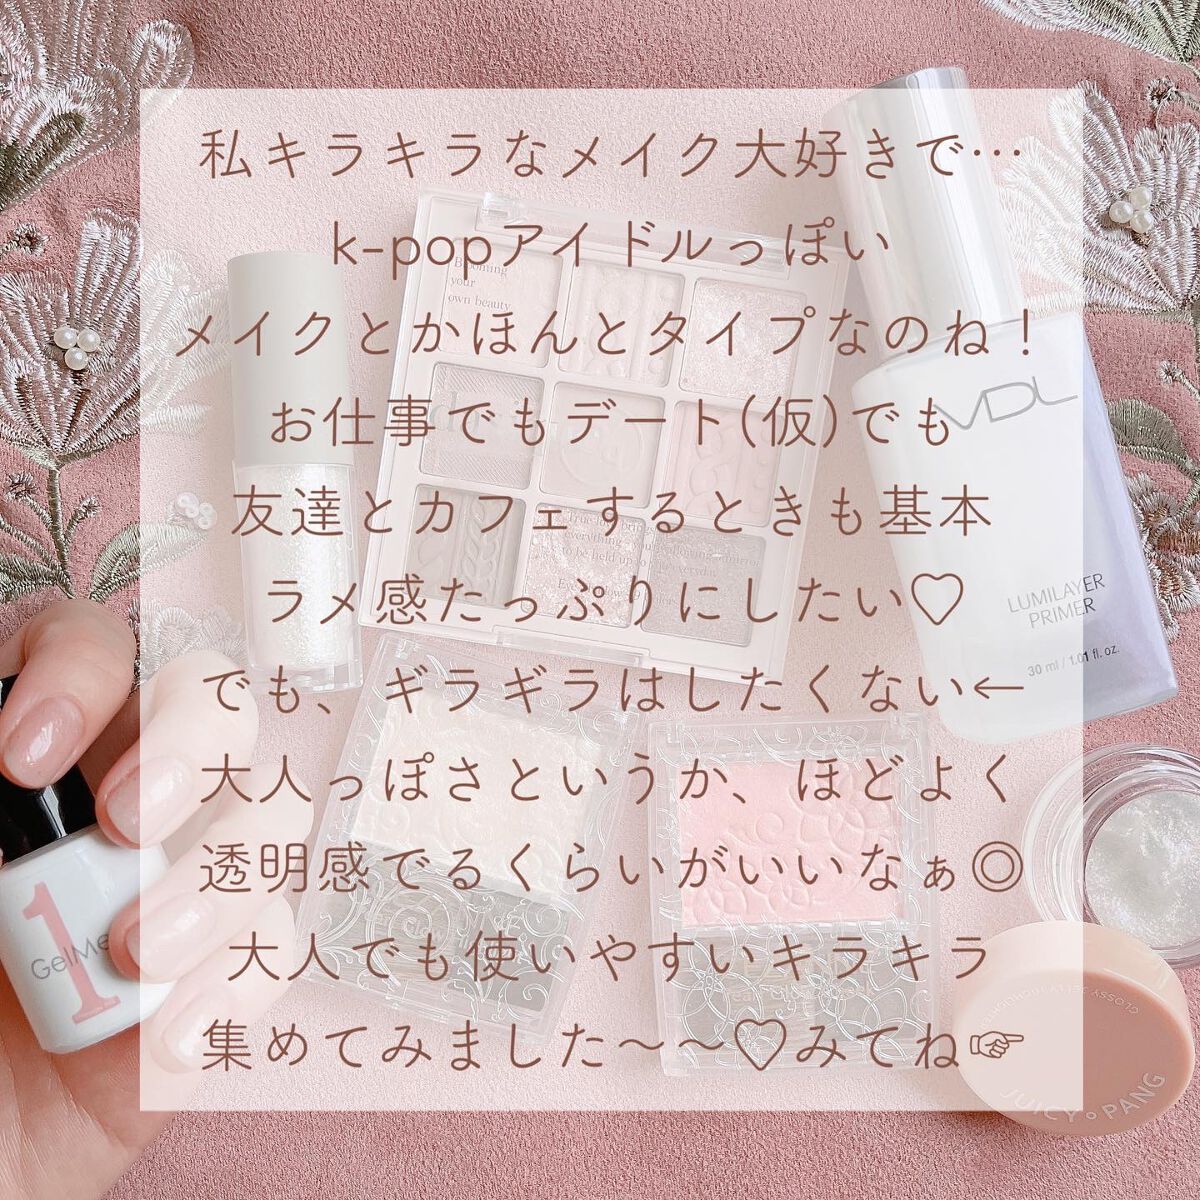 私キラキラなメイク大好きで…
k-popアイドルっぽい
メイクとかほんとタイプなのね！
お仕事でもデート(仮)でも
友達とカフェするときも基本
ラメ感たっぷりにしたい♡
でも、ギラギラはしたくない←
大人っぽさというか、ほどよく
透明感でるくらいがいいなぁ◎
大人でも使いやすいキラキラ
集めてみました〜〜♡みてね☞
Blooming
your
own beauty
VDL
LUMILAYER
PRIMER
30 ml / 1.01 fl. oz.
1
GelMe
JUICY PANG